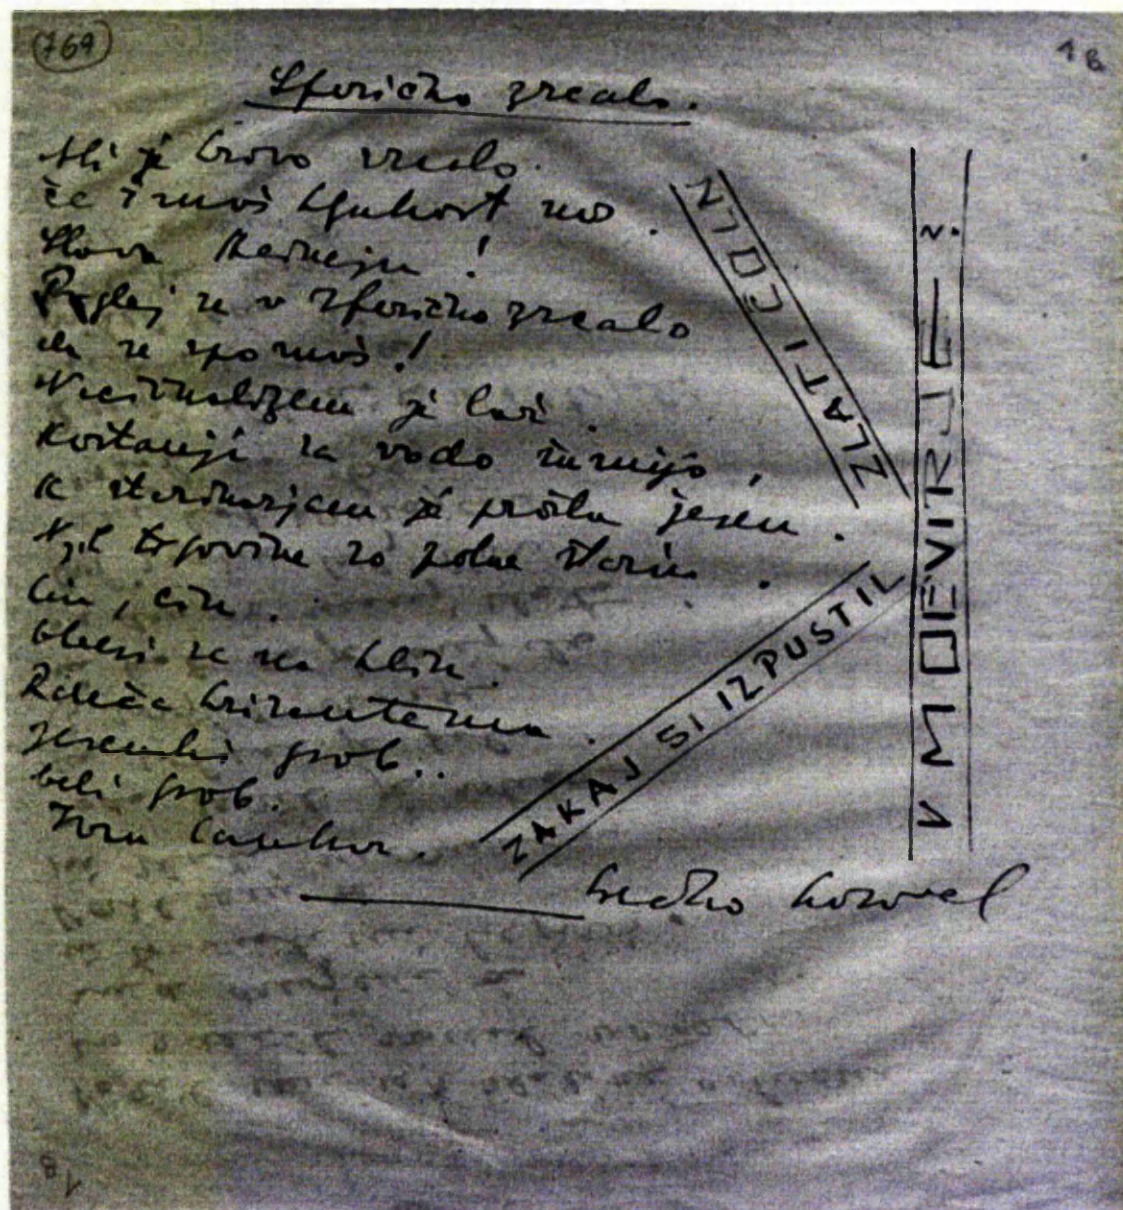 769
18
Sferično zrcalo.
Ali je krivo zrcalo
če imaš kljukast nos.
Slava Heineju!
Poglej se v sferično zrcalo
da se spoznaš!
Nacionalizem je laž.
Kostanji za vodo šumijo,
k starinarjem je prišla jesen.
Njih trgovine so polne starin.
Cin, cin.
Obesi se na klin.
Rdeča krizantema.
Jesenski grob..
beli grob.
Ivan Cankar.
ZAKAJ SI IZPUSTIL
ZLATI ČOLN
V MOČVIRJE — ?
Srečko Kosovel
18